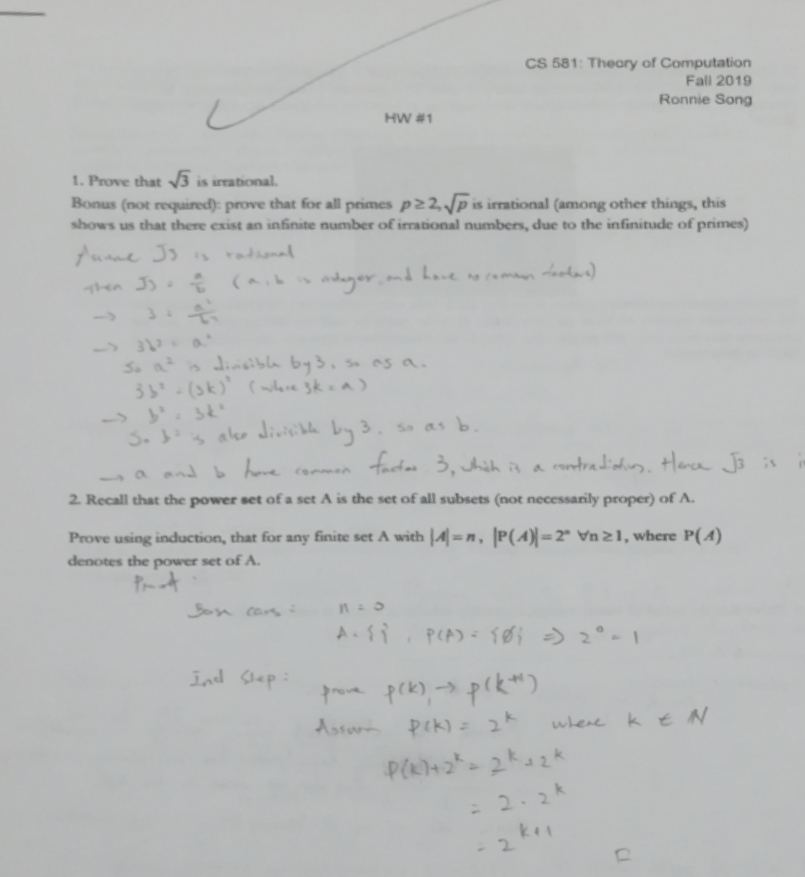 CS 581: Theory of Computation
Fall 2019
Ronnie Song
HW #1
1. Prove that √3 is irrational.
Bonus (not required): prove that for all primes p ≥ 2, √p is irrational (among other things, this
shows us that there exist an infinite number of irrational numbers, due to the infinitude of primes)
Assume √3 is rational
Then √3 = a/b (a, b is integer, and have no common factors)
→ 3 = a²/b²
→ 3b² = a²
So a² is divisible by 3, so as a.
3b² = (3k)² (where 3k = a)
→ b² = 3k²
So b² is also divisible by 3, so as b.
→ a and b have common factor 3, which is a contradiction. Hence √3 is
2. Recall that the power set of a set A is the set of all subsets (not necessarily proper) of A.
Prove using induction, that for any finite set A with |A| = n, |P(A)| = 2ⁿ ∀n ≥ 1, where P(A)
denotes the power set of A.
Proof
Base case: n = 0
A = {}, P(A) = {∅} ⇒ 2⁰ = 1
Ind Step: prove p(k) → p(k+1)
Assum P(k) = 2ᵏ where k ∈ N
P(k)+2ᵏ = 2ᵏ + 2ᵏ
= 2 · 2ᵏ
= 2ᵏ⁺¹